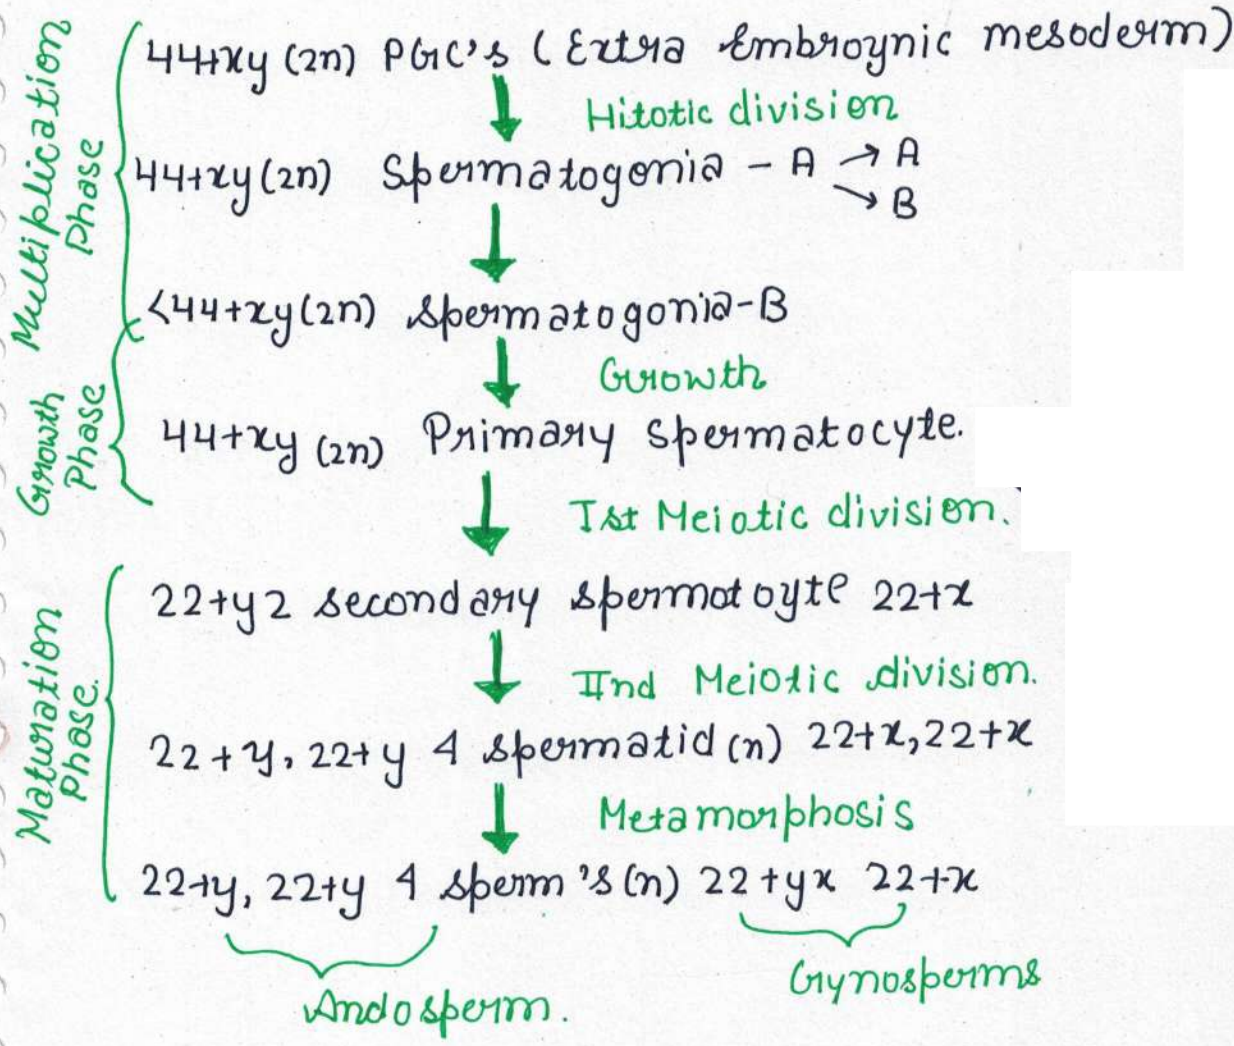 Multiplication Phase
44+xy (2n) PGC's (Extra Embroynic mesoderm)
Hitotic division
44+xy (2n) Spermatogonia - A → A
→ B
<44+xy (2n) spermatogonia-B
Growth
Growth Phase
44+xy (2n) Primary spermatocyte.
Ist Meiotic division.
Maturation Phase.
22+y 2 secondary spermotoyte 22+x
IInd Meiotic division.
22+y, 22+y 4 spermatid (n) 22+x, 22+x
Metamorphosis
22+y, 22+y 4 sperm's (n) 22+yx 22+x
Andosperm.
Gynosperms